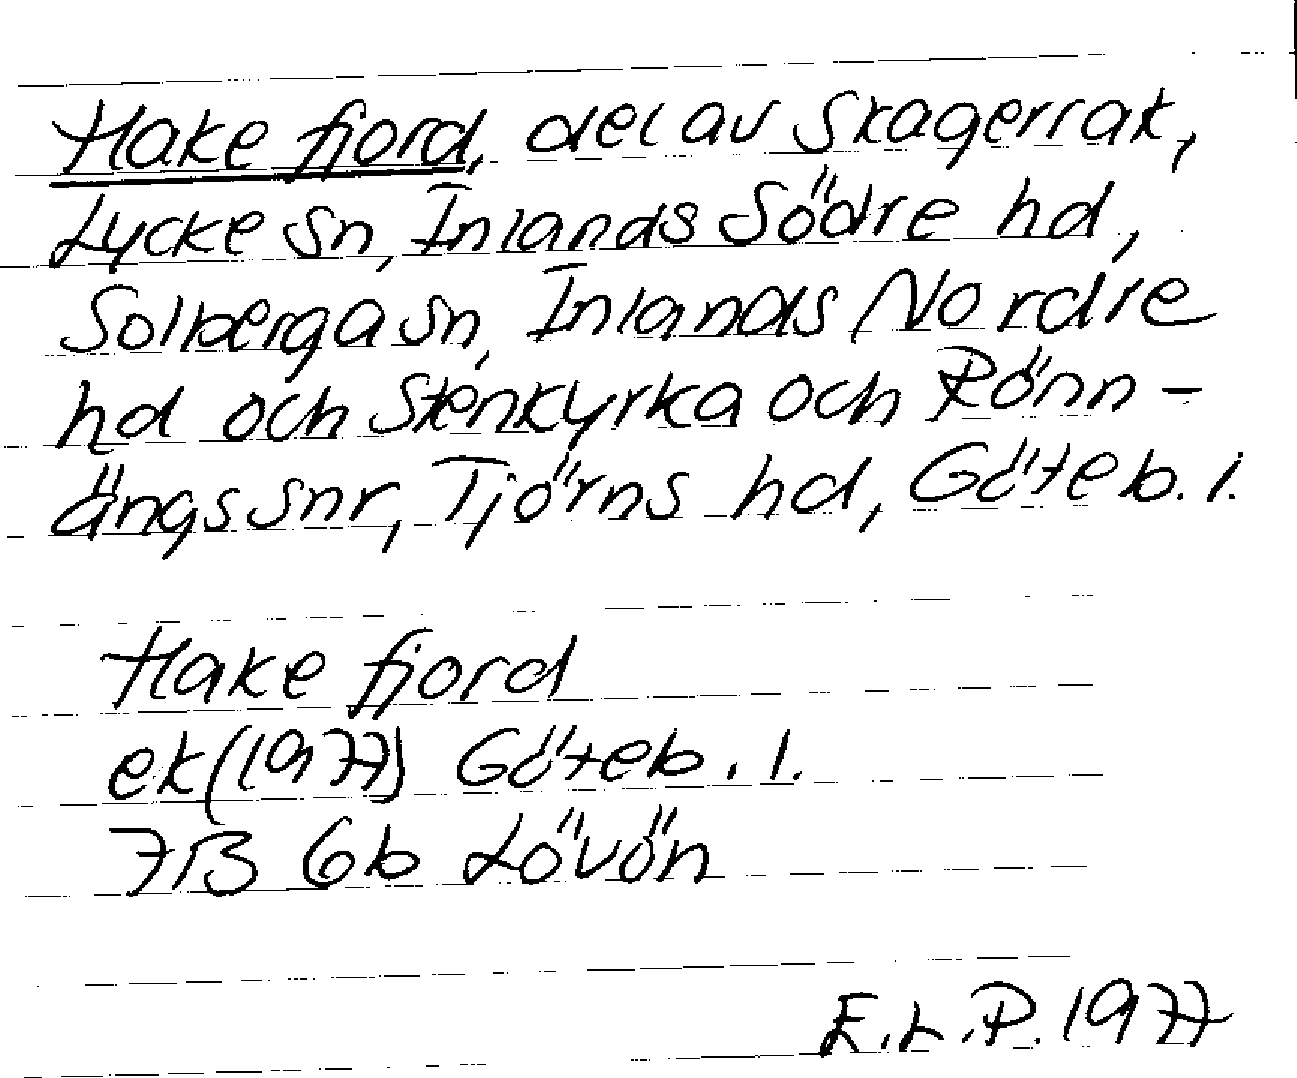 Hake fjord, del av Skagerrak,
Lycke sn, Inlands Södre hd,
Solberga sn, Inlands Nordre
hd och Stenkyrka och Rönn-
ängs snr, Tjörns hd, Göteb. l.
Hake fjord
ek (1977) Göteb. l.
7B 6b Lövön
E.L.P. 1977